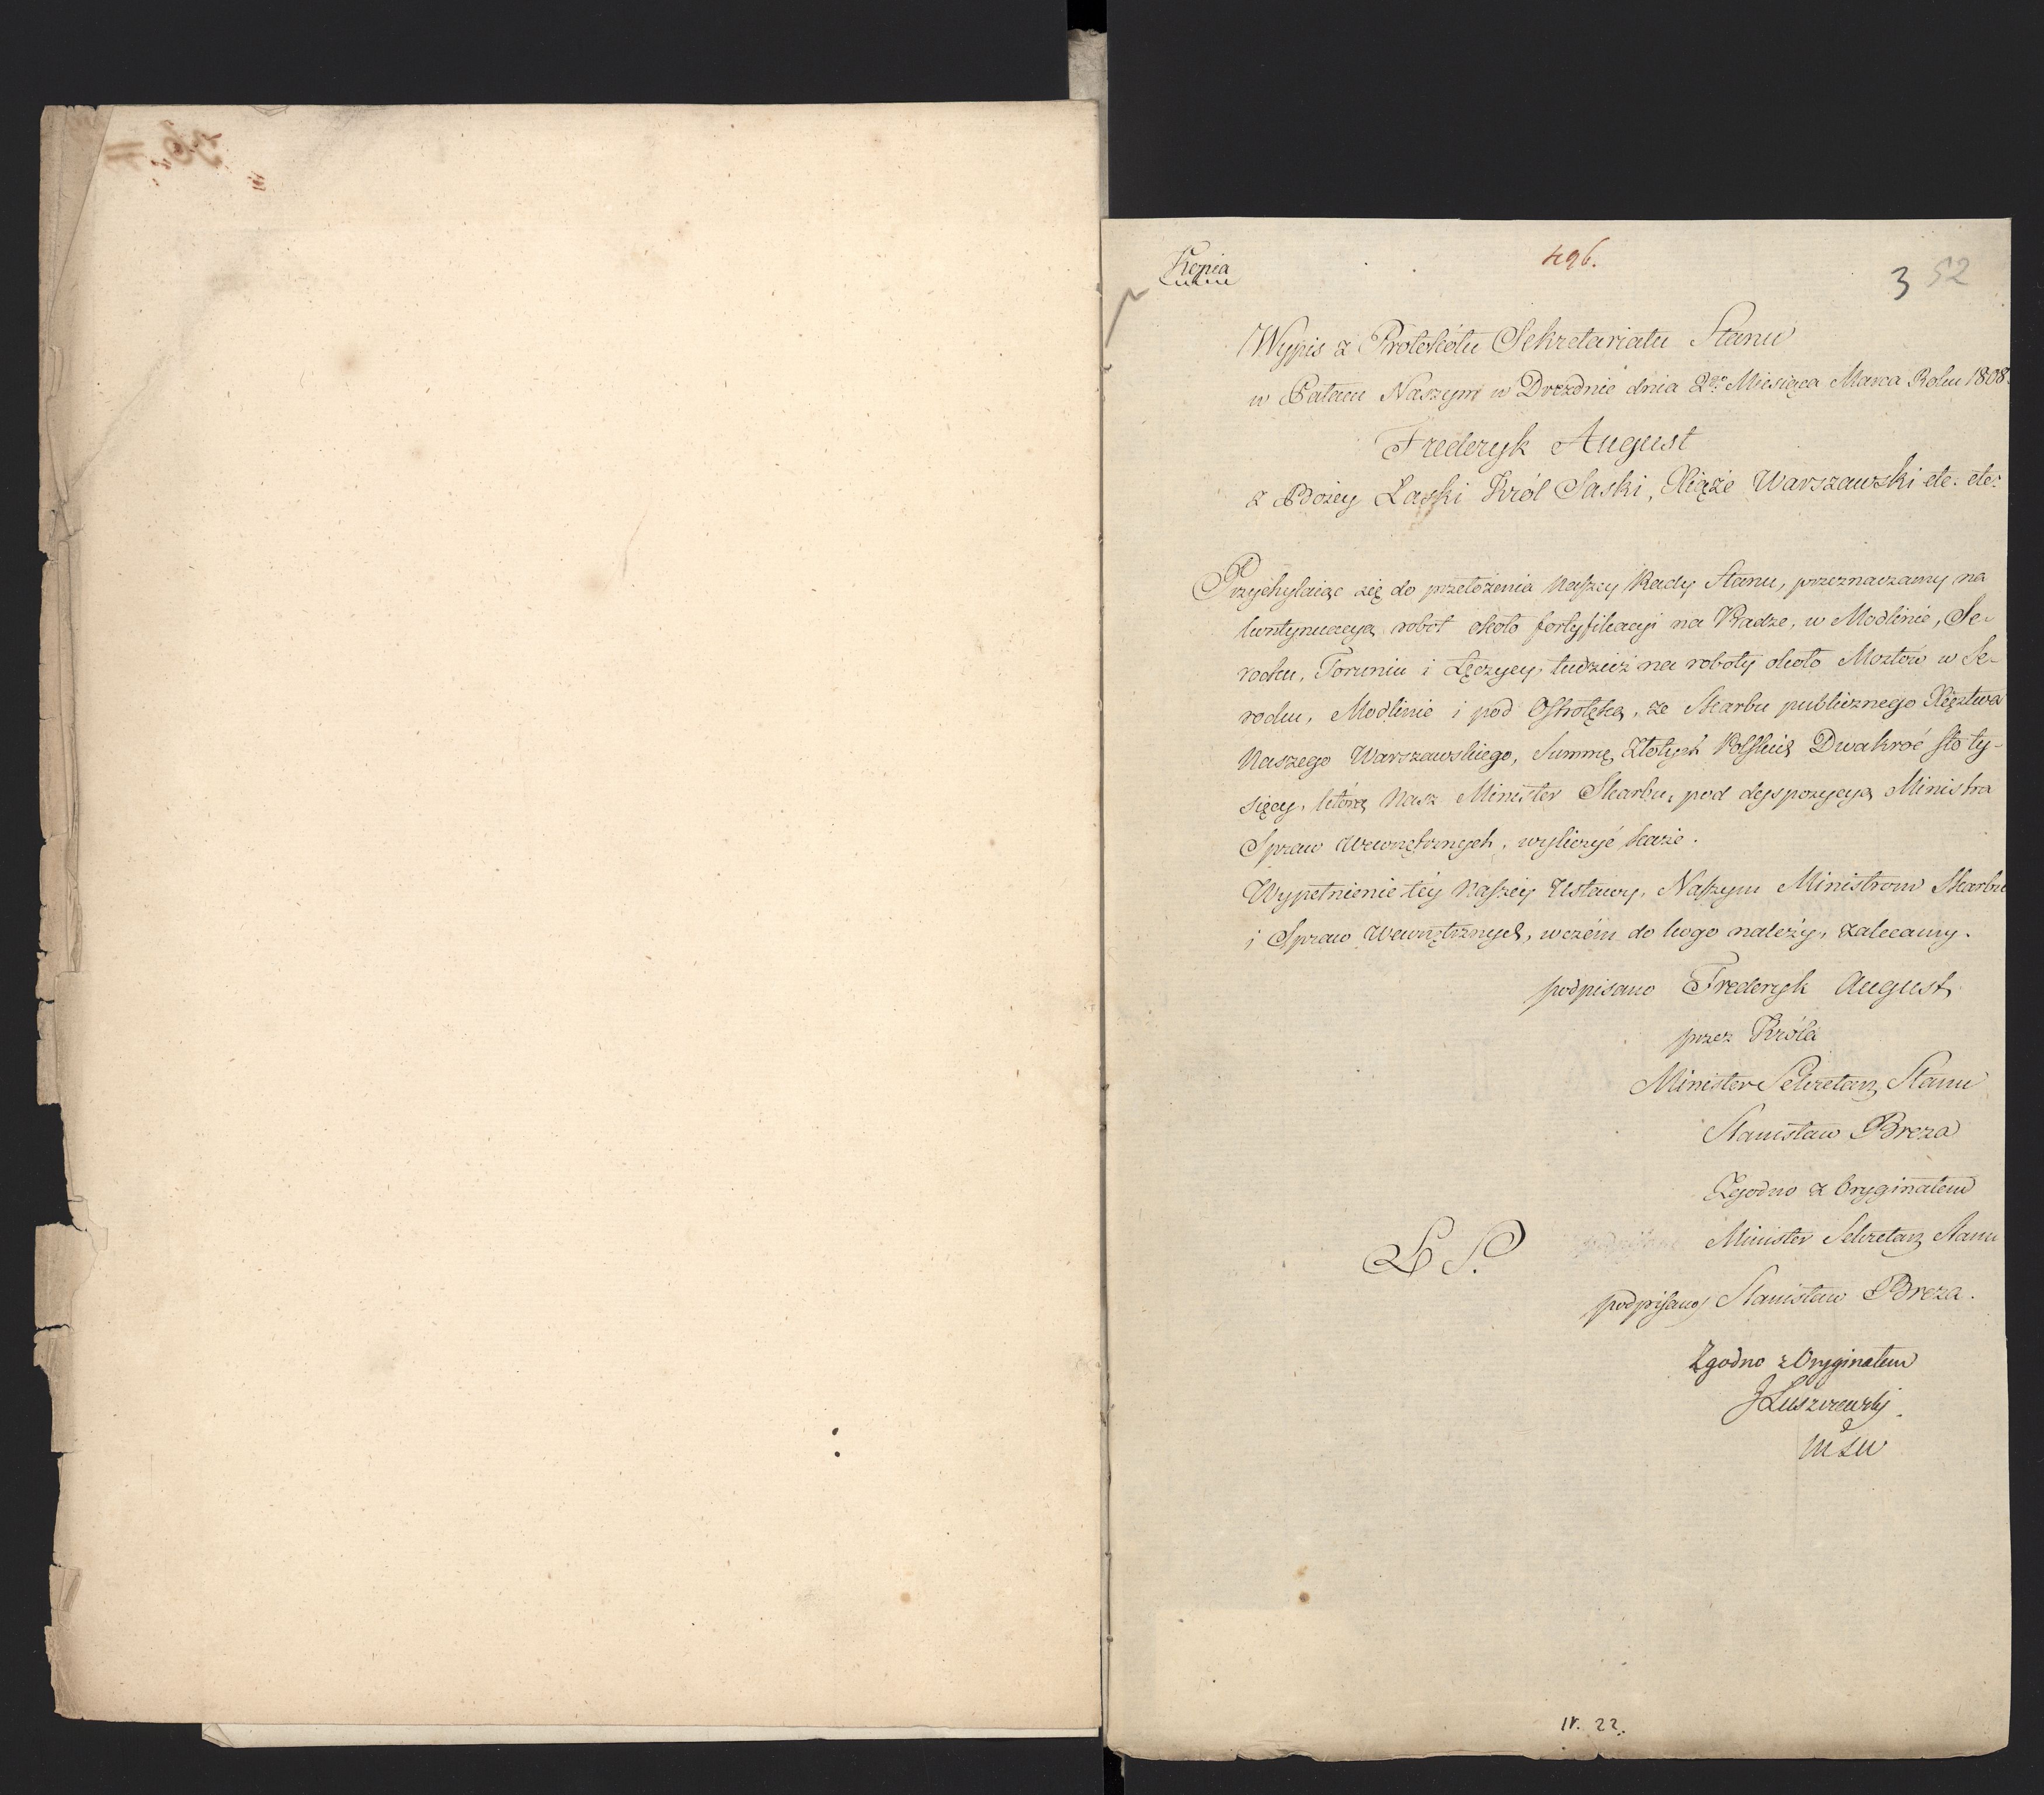 Kopia
496.
3 52
Wypis z Protokółu Sekretariatu Stanu
w Pałacu Naszym w Dreźdnie dnia 2go Miesiąca Marca Roku 1808.
Frederyk August
z Bożey Łaski Król Saski, Xiąże Warszawski etc. etc.
Przychylaiąc się do przełożenia Naszey Rady Stanu, przeznaczamy na
kontynuacyą robot około fortyfikacyi na Pradze, w Modlinie, Se-
rocku, Toruniu i Łęczycy, tudzież na roboty około Mostów w Se-
rocku, Modlinie i pod Ostrołęką, ze Skarbu publicznego Xięztwa
Naszego Warszawskiego, Summę Złotych Polskich Dwakroć sto ty-
sięcy, którą Nasz Minister Skarbu, pod dyspozycyą Ministra
Spraw Wewnętrznych, wyliczyć każe.
Wypełnienie téy Naszéy Ustawy, Naszym Ministrom Skarbu
i Spraw Wewnętrznych, w czém do kogo należy, zalecamy.
podpisano Frederyk August
przez Króla
Minister Sekretarz Stanu
Stanisław Breza
Zgodno z Oryginałem
L S. Minister Sekretarz Stanu
podpisano Stanisław Breza.
Zgodno z Oryginałem
J Łuszczewski
MSW
IV. 22.